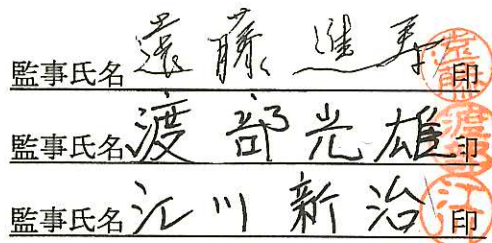 監事氏名 遠藤進寿 印
監事氏名 渡部光雄 印
監事氏名 江川新治 印